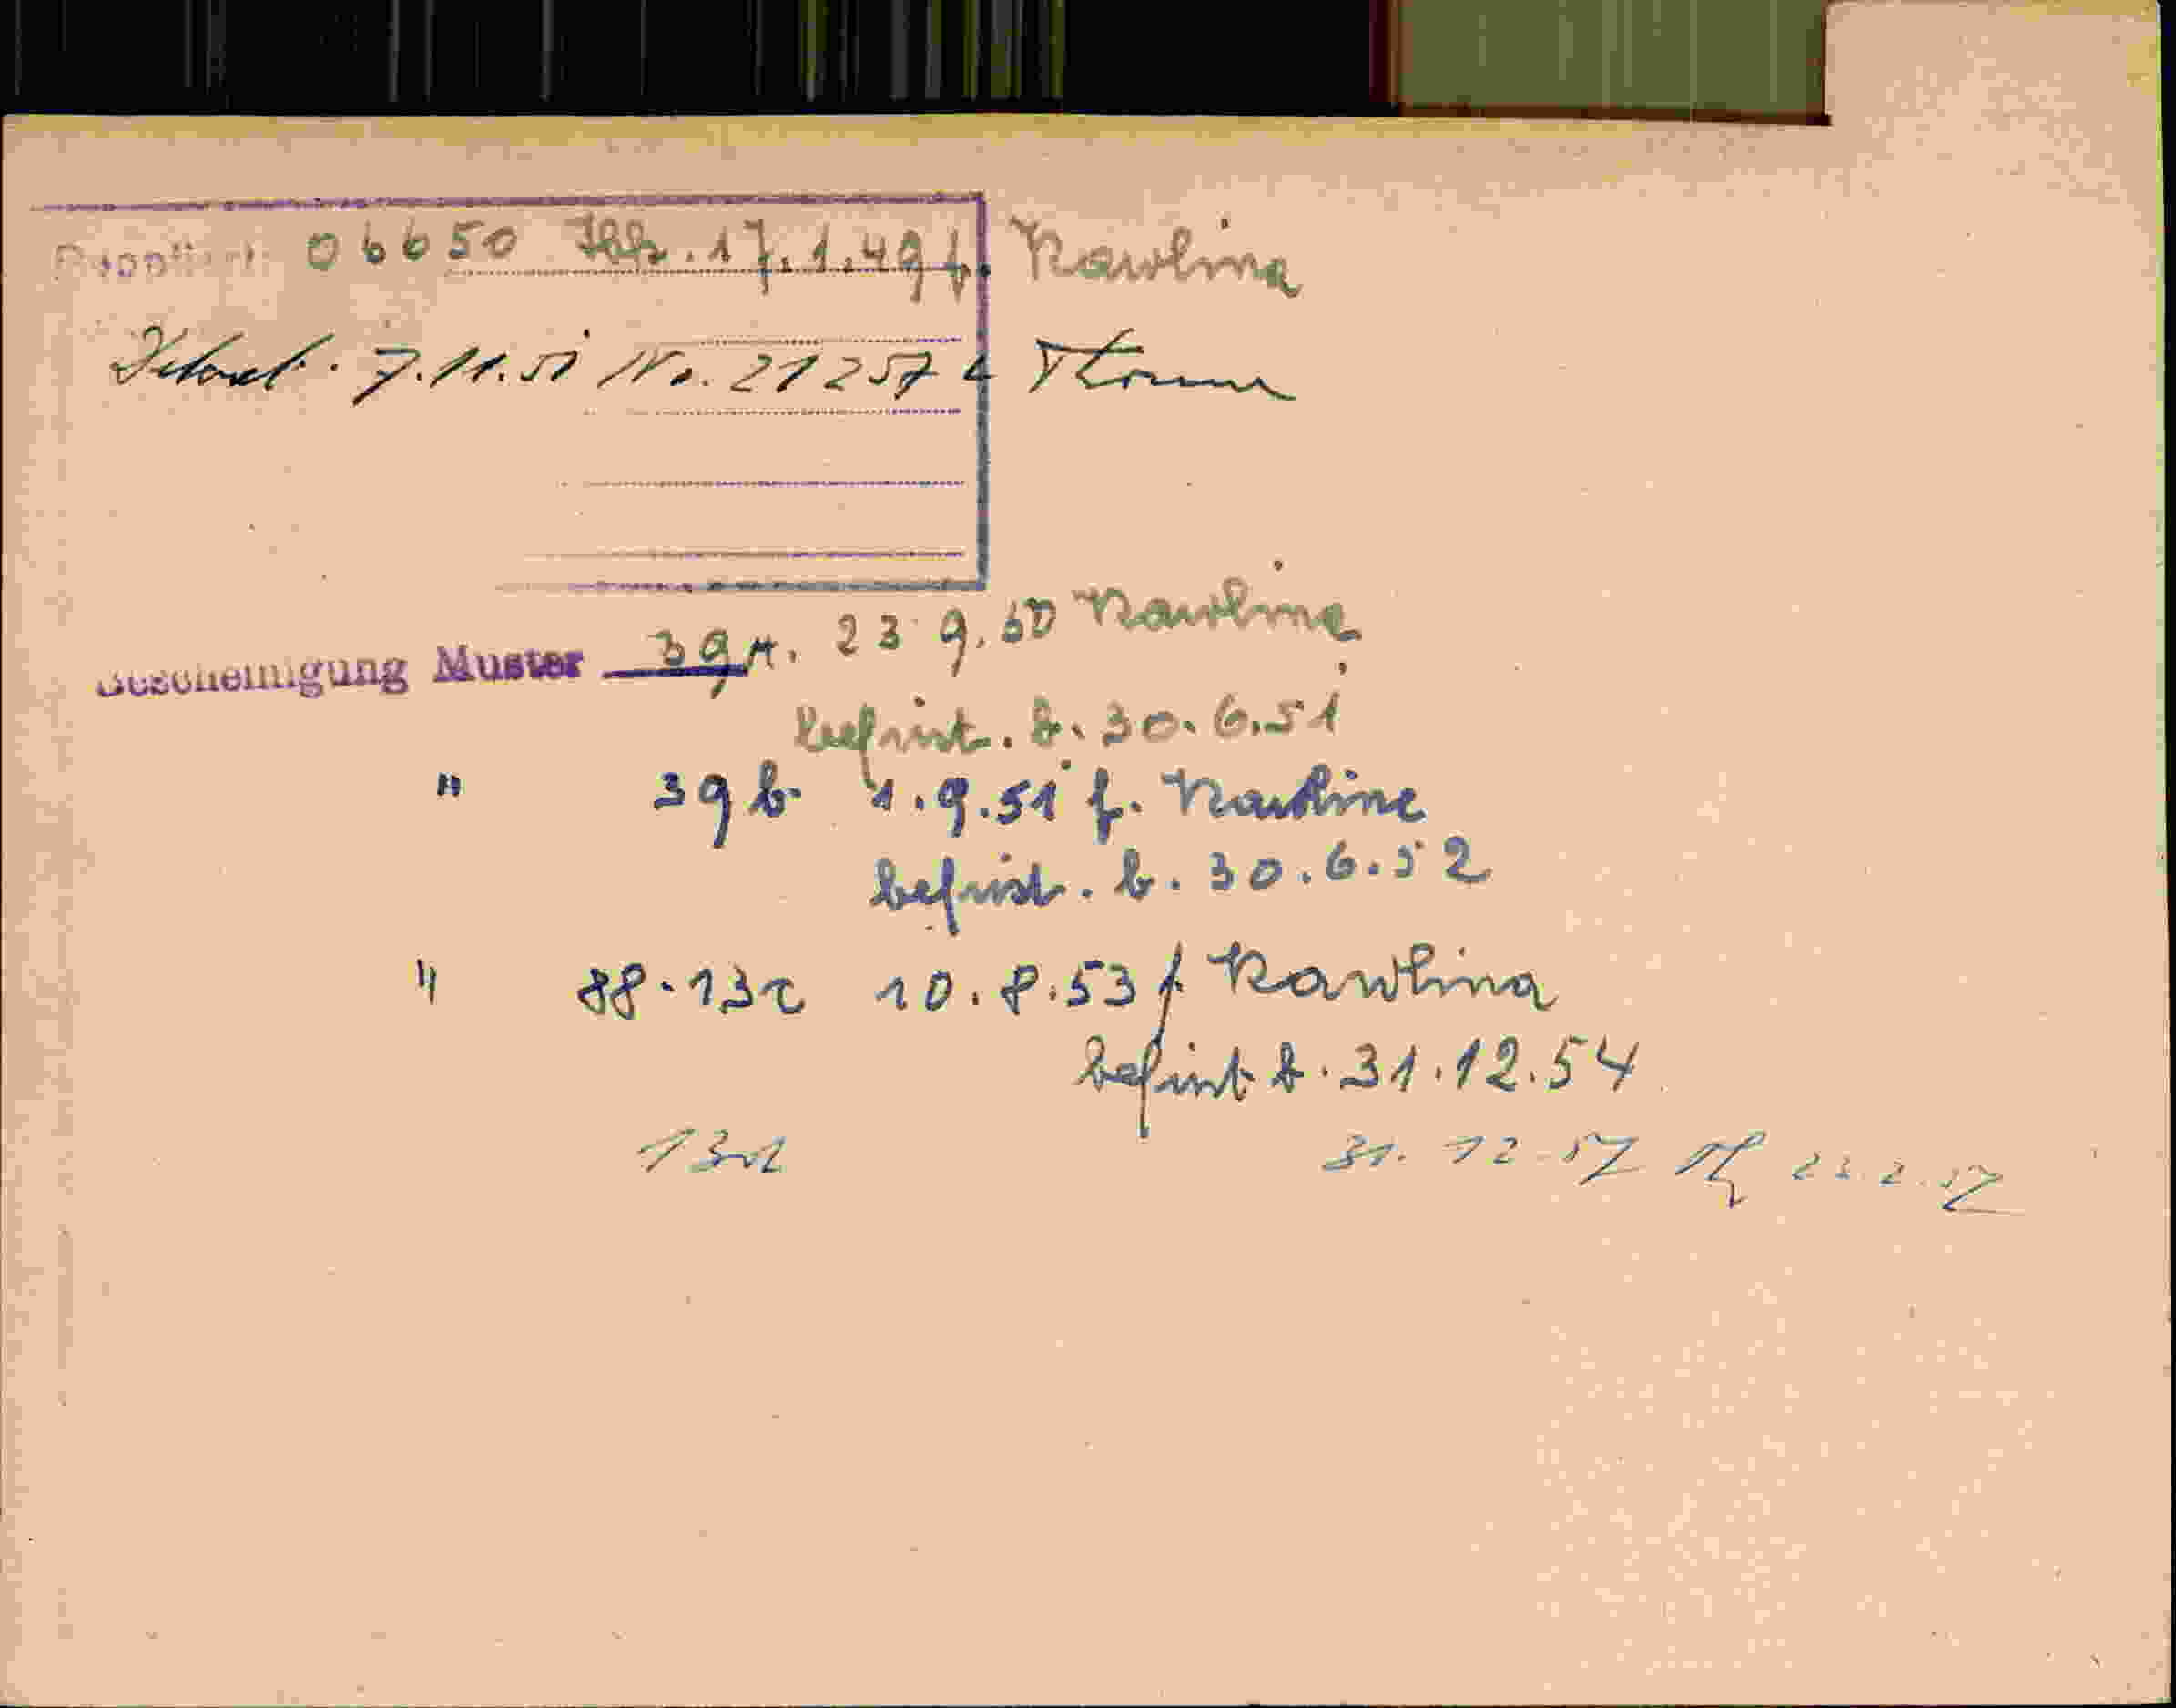 06650 17.1.49 f. Kawlina
7.11.51 No. 21257
Bescheinigung Muster 39 a. 23.9.50 Kawlina
befrist. b. 30.6.51
" 39 b 1.9.51 f. Kawlina
befrist. b. 30.6.52
" 88.13c 10.8.53 f. Kawlina
befrist b. 31.12.54
31.12.57 22.2.57